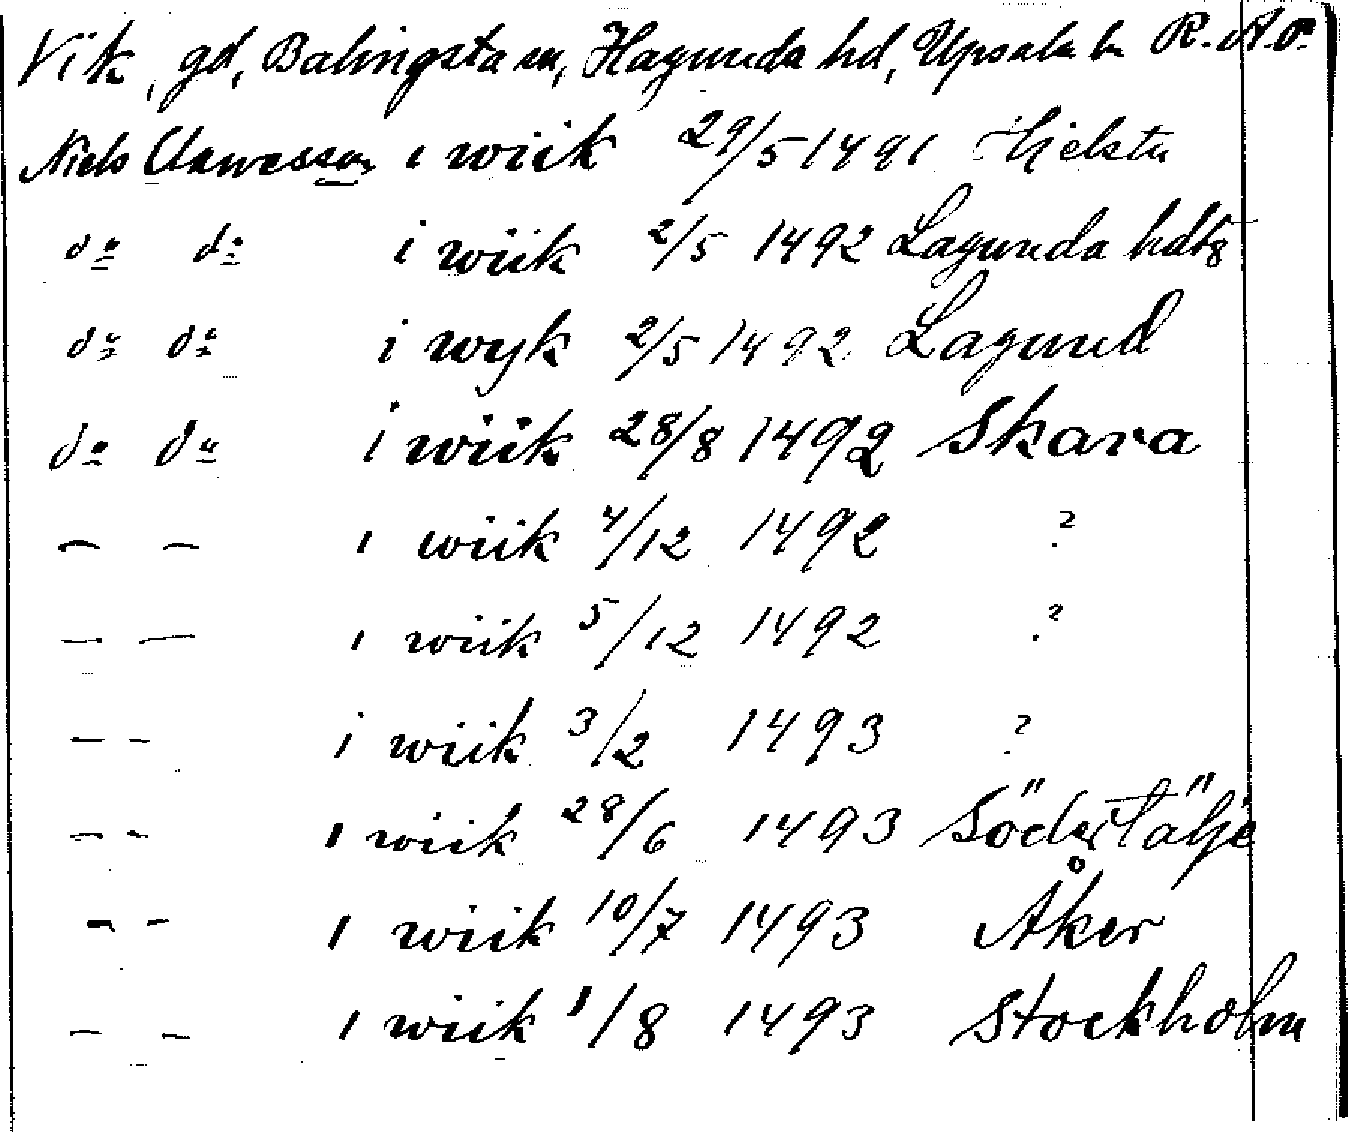 Vik, gd, Balingsta sn, Hagunda hd, Upsala ln R.A.o.
Niels Clawesson i wiik 29/5 1491 Hjelsta
do do i wiik 2/5 1492 Lagunda hdtg
do do i wyk 2/5 1492 Lagund
do do i wiik 28/8 1492 Skara
— — i wiik 4/12 1492 ?
— — i wiik 5/12 1492 ?
— — i wiik 3/2 1493 ?
— — i wiik 28/6 1493 Södertälje
— — i wiik 10/7 1493 Åker
— — i wiik 1/8 1493 Stockholm